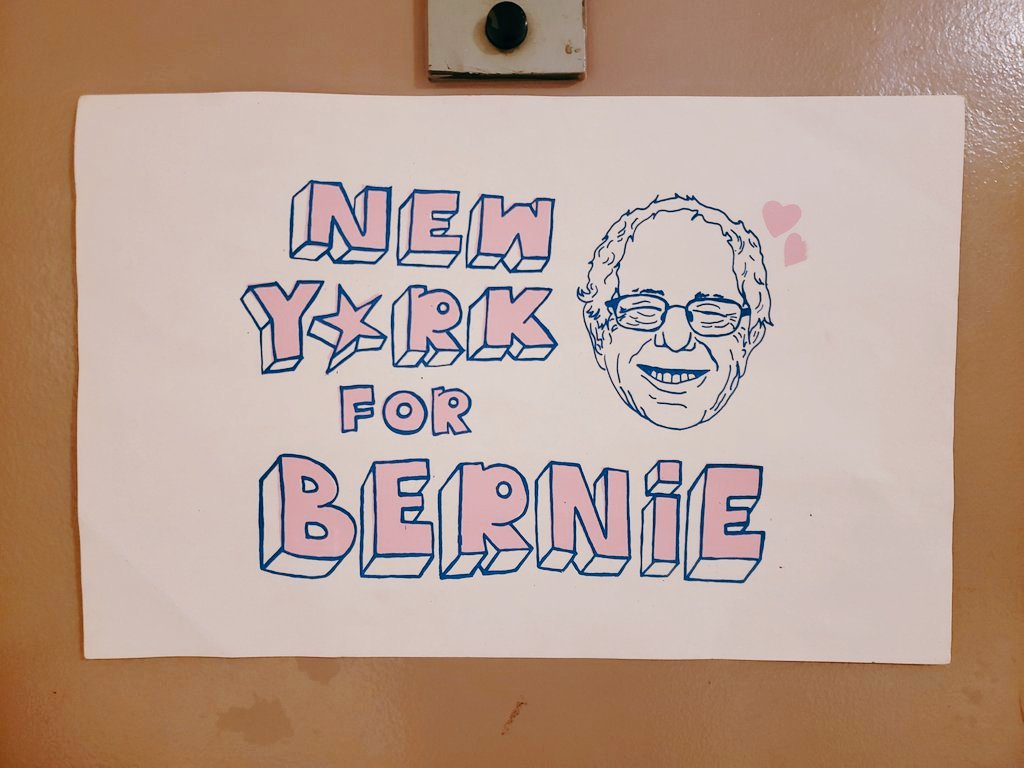 NEW
Y★RK
FOR
BERNiE